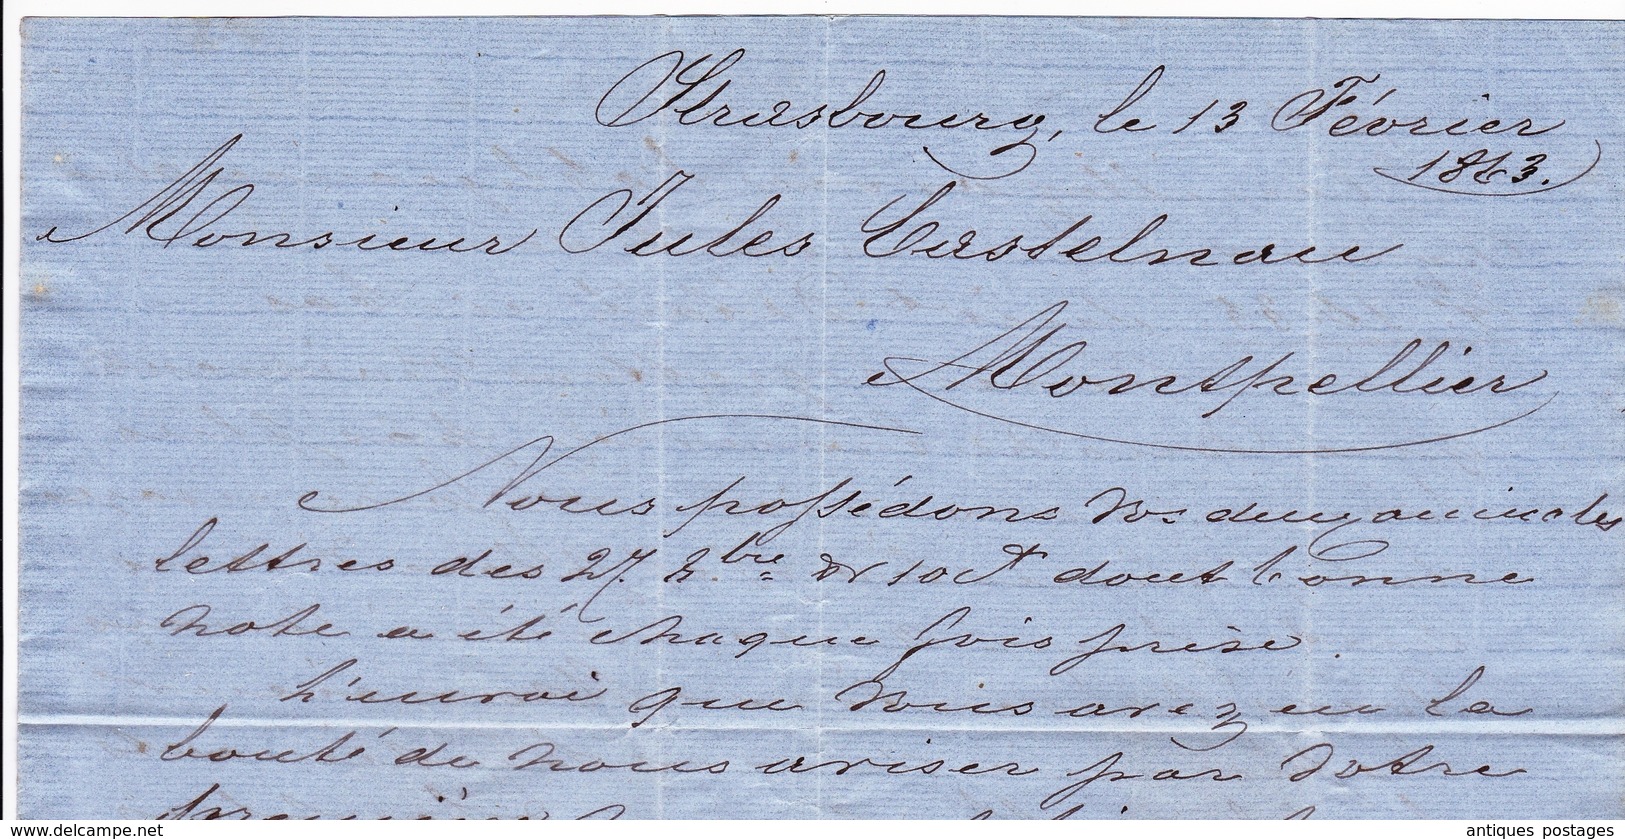 Strasbourg, le 13 Février
1863.
Monsieur Jules Castelnau
Montpellier
Nous possédons vos deux amicales
lettres des 27. Xbre & 10 Ct dont bonne
note a été chaque fois prise.
L'envoi que vous avez eu la
bonté de nous aviser par votre
première
www.delcampe.net
antiques postages